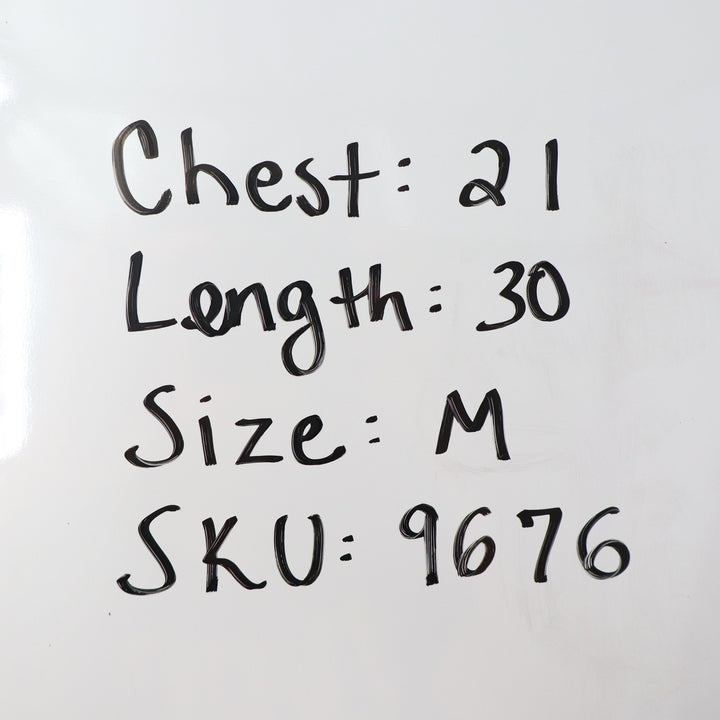 Chest: 21
Length: 30
Size: M
SKU: 9676